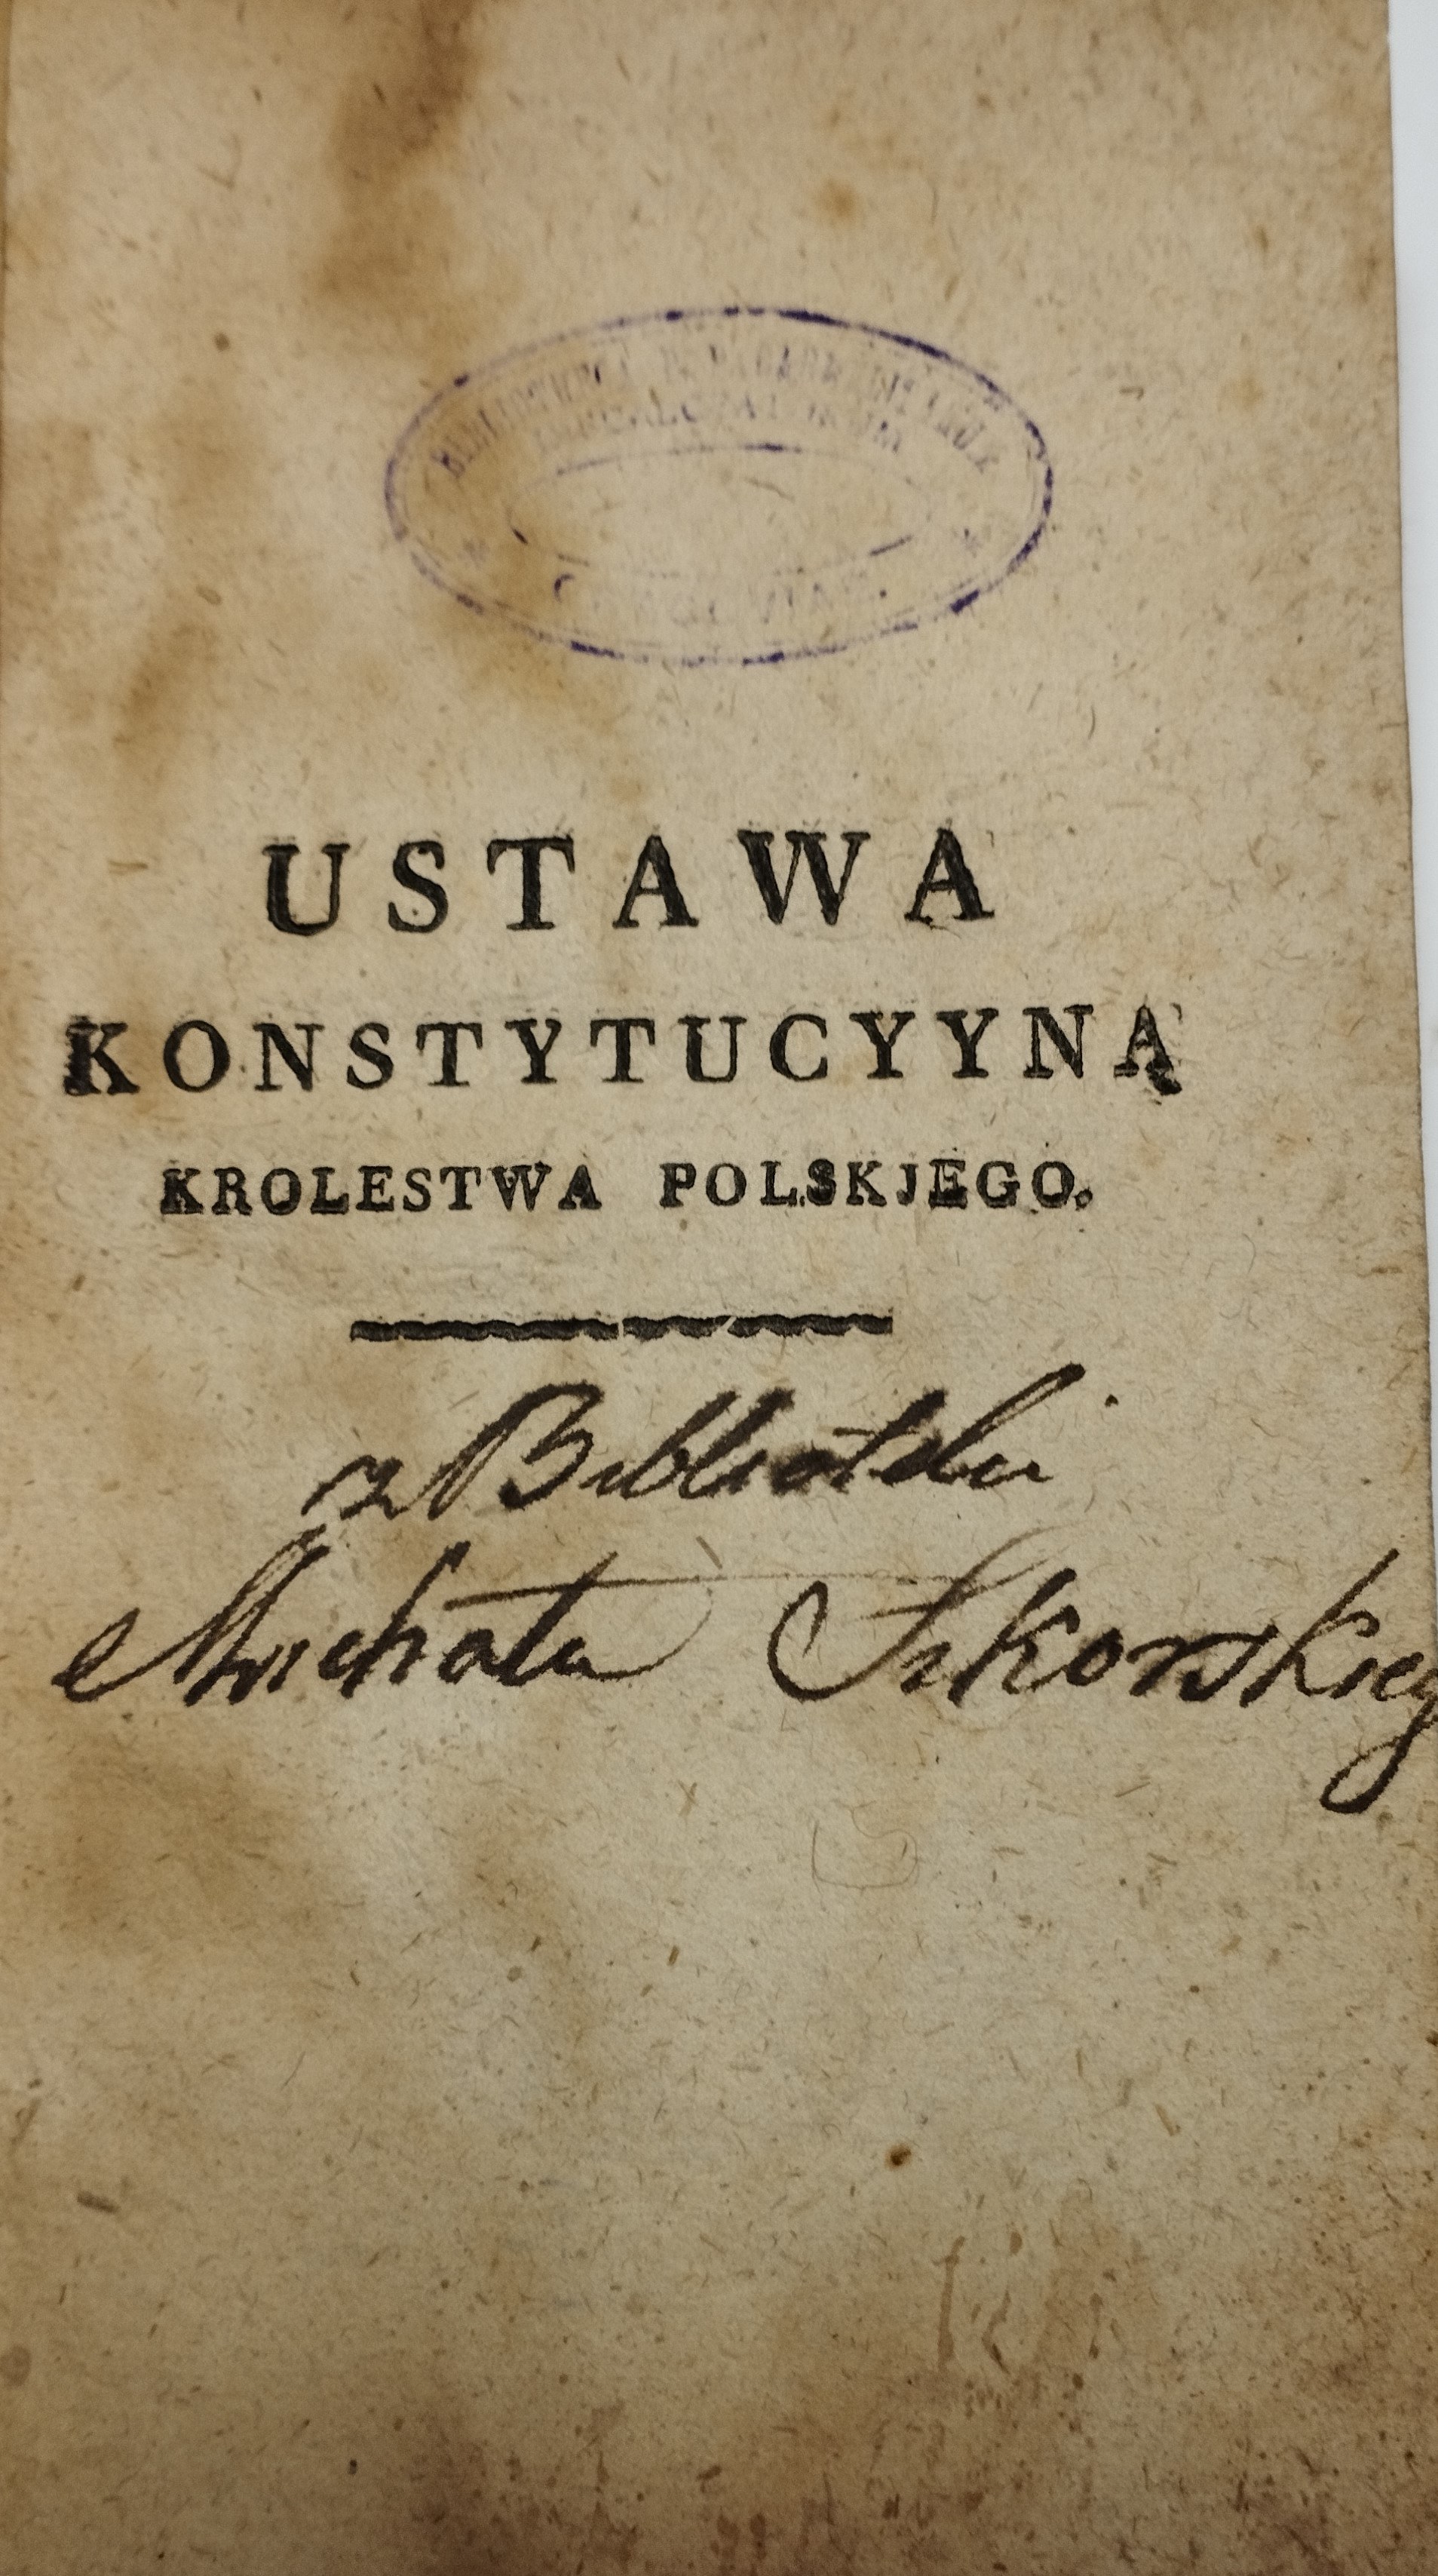 USTAWA
KONSTYTUCYYNĄ
KROLESTWA POLSKJEGO.
z Biblioteki
Michała Sikorskieg